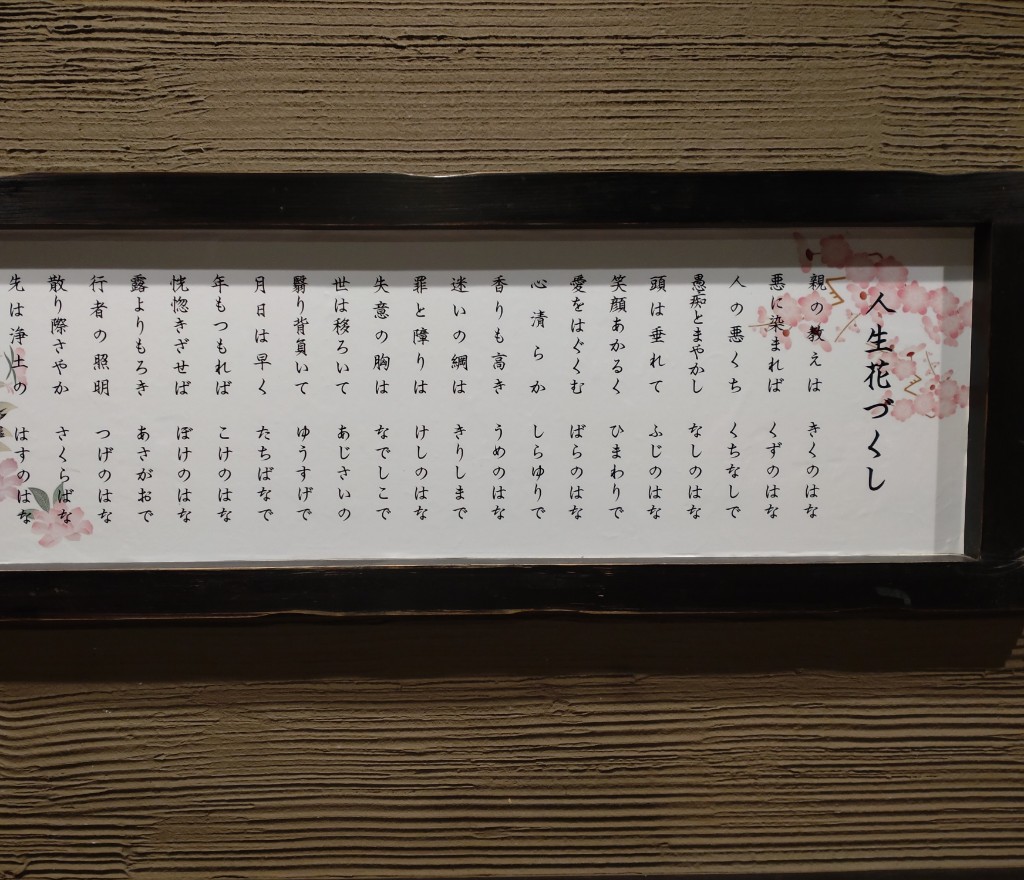 人生花づくし
親の教えは　きくのはな
悪に染まれば　くずのはな
人の悪くち　くちなしで
愚痴とまやかし　なしのはな
頭は垂れて　ふじのはな
笑顔あかるく　ひまわりで
愛をはぐくむ　ばらのはな
心清らか　しらゆりで
香りも高き　うめのはな
迷いの綱は　きりしまで
罪と障りは　けしのはな
失意の胸は　なでしこで
世は移ろいて　あじさいの
翳り背負いて　ゆうすげで
月日は早く　たちばなで
年もつもれば　こけのはな
恍惚きざせば　ぼけのはな
露よりもろき　あさがおで
行者の照明　つげのはな
散り際さやか　さくらばな
先は浄土の　はすのはな